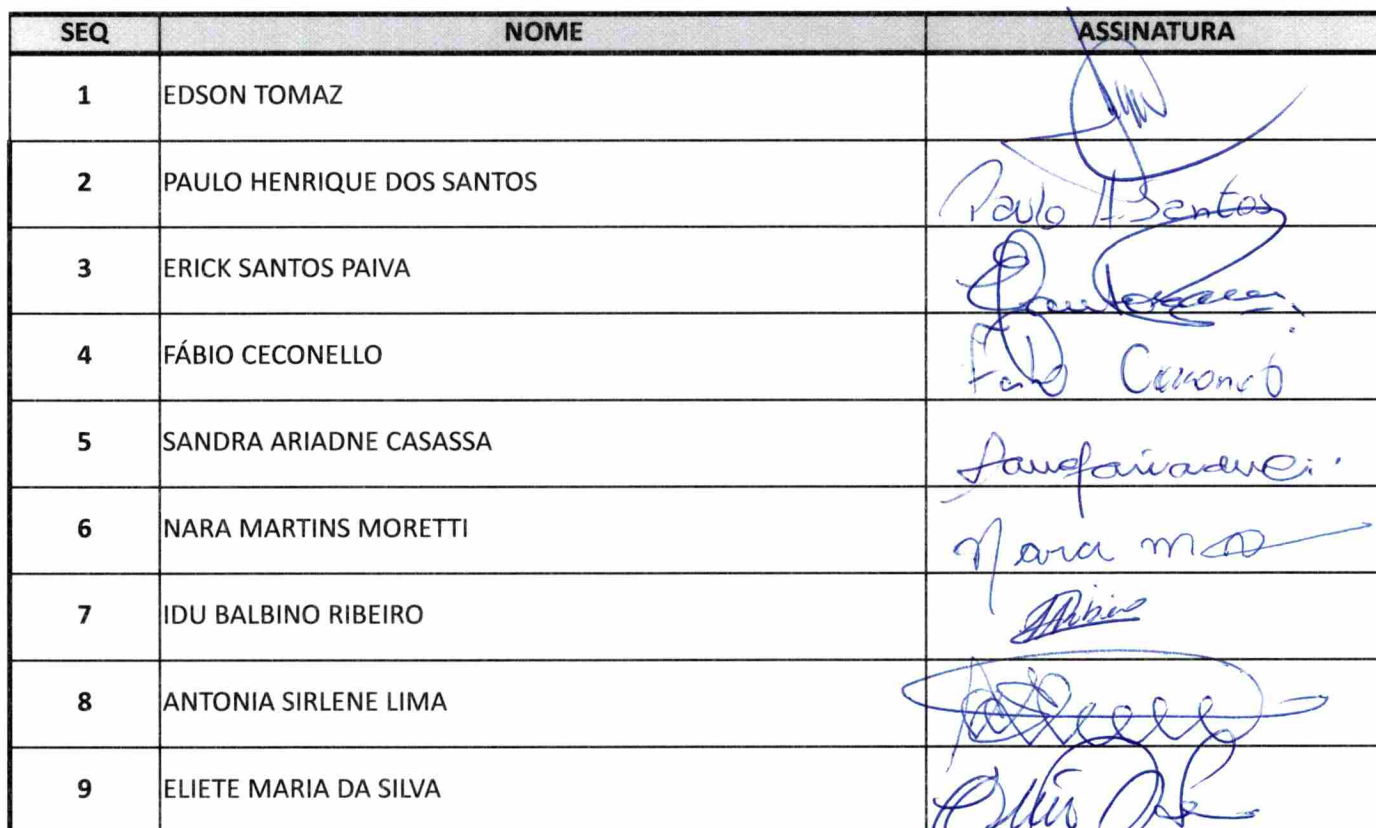 SEQ NOME ASSINATURA
1 EDSON TOMAZ
2 PAULO HENRIQUE DOS SANTOS Paulo H Santos
3 ERICK SANTOS PAIVA
4 FÁBIO CECONELLO
5 SANDRA ARIADNE CASASSA
6 NARA MARTINS MORETTI Nara
7 IDU BALBINO RIBEIRO
8 ANTONIA SIRLENE LIMA
9 ELIETE MARIA DA SILVA